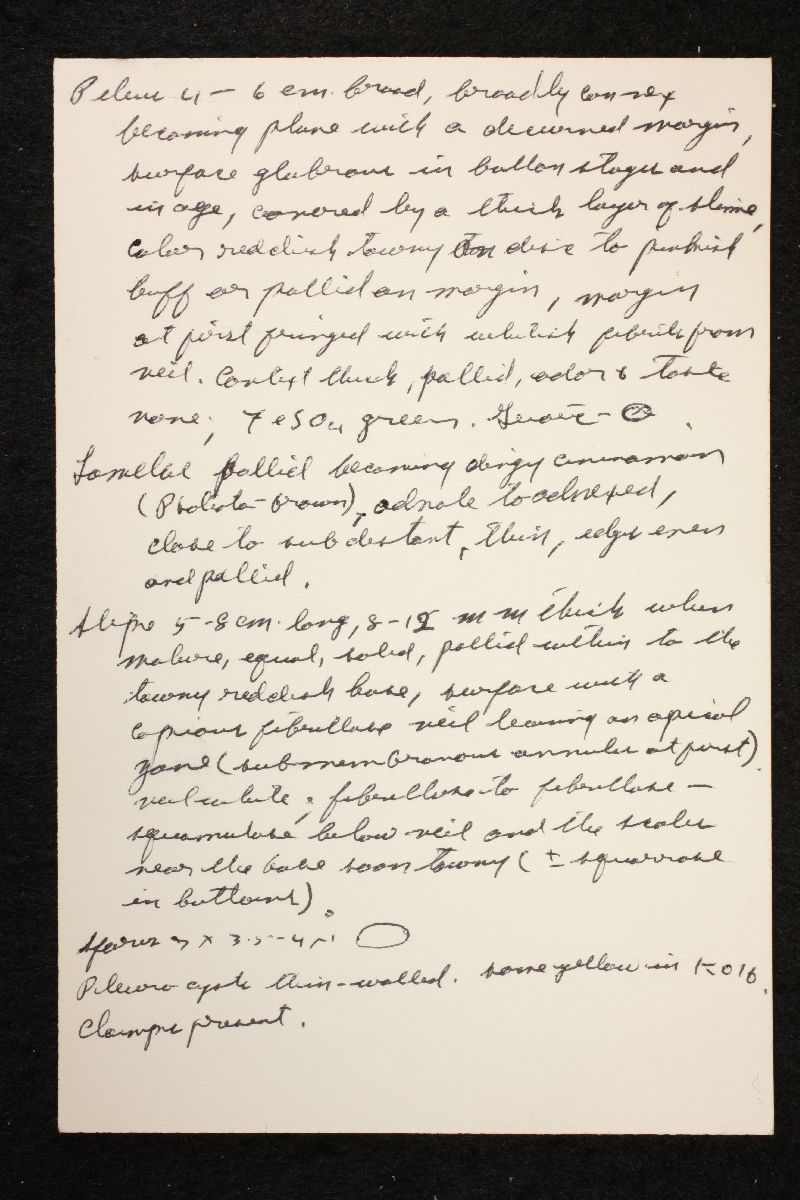 Pileus 4 – 6 cm. broad, broadly convex
becoming plane with a decurved margin,
surface glabrous in button stages and
in age, covered by a thick layer of slime,
color reddish tawny on disc to pinkish
buff or pallid on margin, margin
at first fringed with whitish fibrils from
veil. Context thick, pallid, odor & taste
none; FeSO4 green. Guaic –
Lamellae pallid becoming dingy cinnamon
(Pholiota-brown), adnate to adnexed,
close to subdistant, thin, edges even
and pallid.
Stipe 5-8 cm. long, 8-12 mm thick when
mature, equal, solid, pallid within to the
tawny reddish base, surface with a
copious fibrillose veil leaving an apical
zone (submembranous annulus at first)
veil white; fibrillose to fibrillose –
squamulose below veil and the scales
near the base soon tawny (± squarrose
in buttons).
Spores 7 x 3.5-4 µ
Pleurocysts thin-walled. some yellow in KOH.
Clamps present.